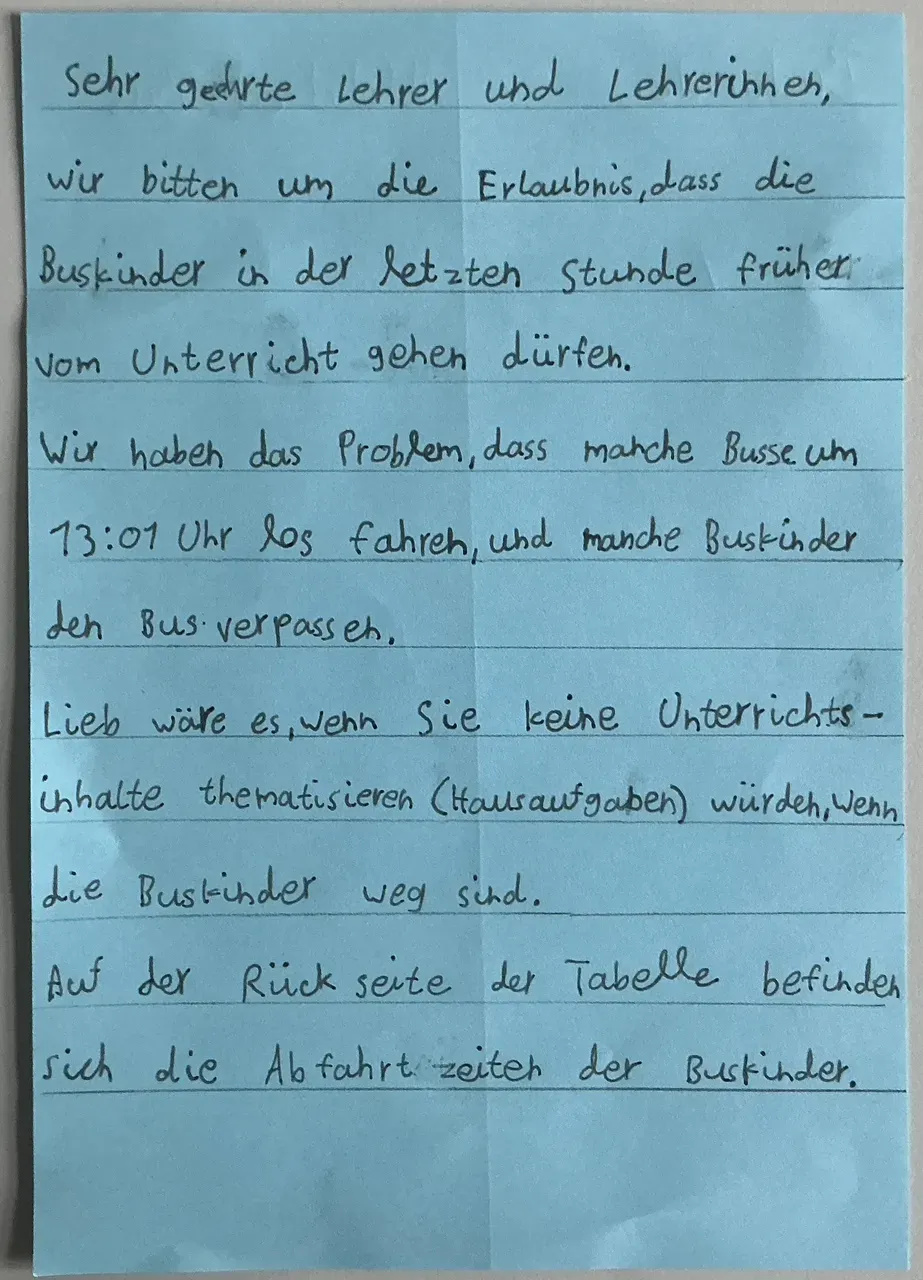 Sehr geehrte Lehrer und Lehrerinnen,
wir bitten um die Erlaubnis, dass die
Buskinder in der letzten Stunde früher
vom Unterricht gehen dürfen.
Wir haben das Problem, dass manche Busse um
13:01 Uhr los fahren, und manche Buskinder
den Bus verpassen.
Lieb wäre es, wenn Sie keine Unterrichts-
inhalte thematisieren (Hausaufgaben) würden, wenn
die Buskinder weg sind.
Auf der Rückseite der Tabelle befinden
sich die Abfahrtzeiten der Buskinder.